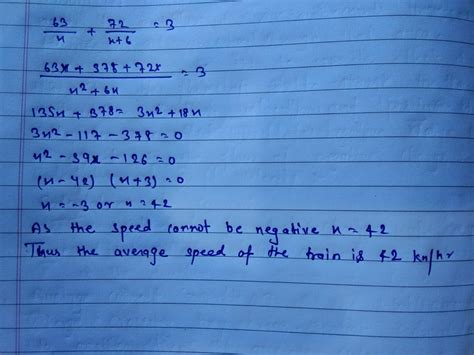 63/x + 72/x+6 = 3
63x + 378 + 72x / x² + 6x = 3
135x + 378 = 3x² + 18x
3x² - 117 - 378 = 0
x² - 39x - 126 = 0
(x - 42) (x + 3) = 0
x = -3 or x = 42
As the speed cannot be negative x = 42
Thus the average speed of the train is 42 km/hr